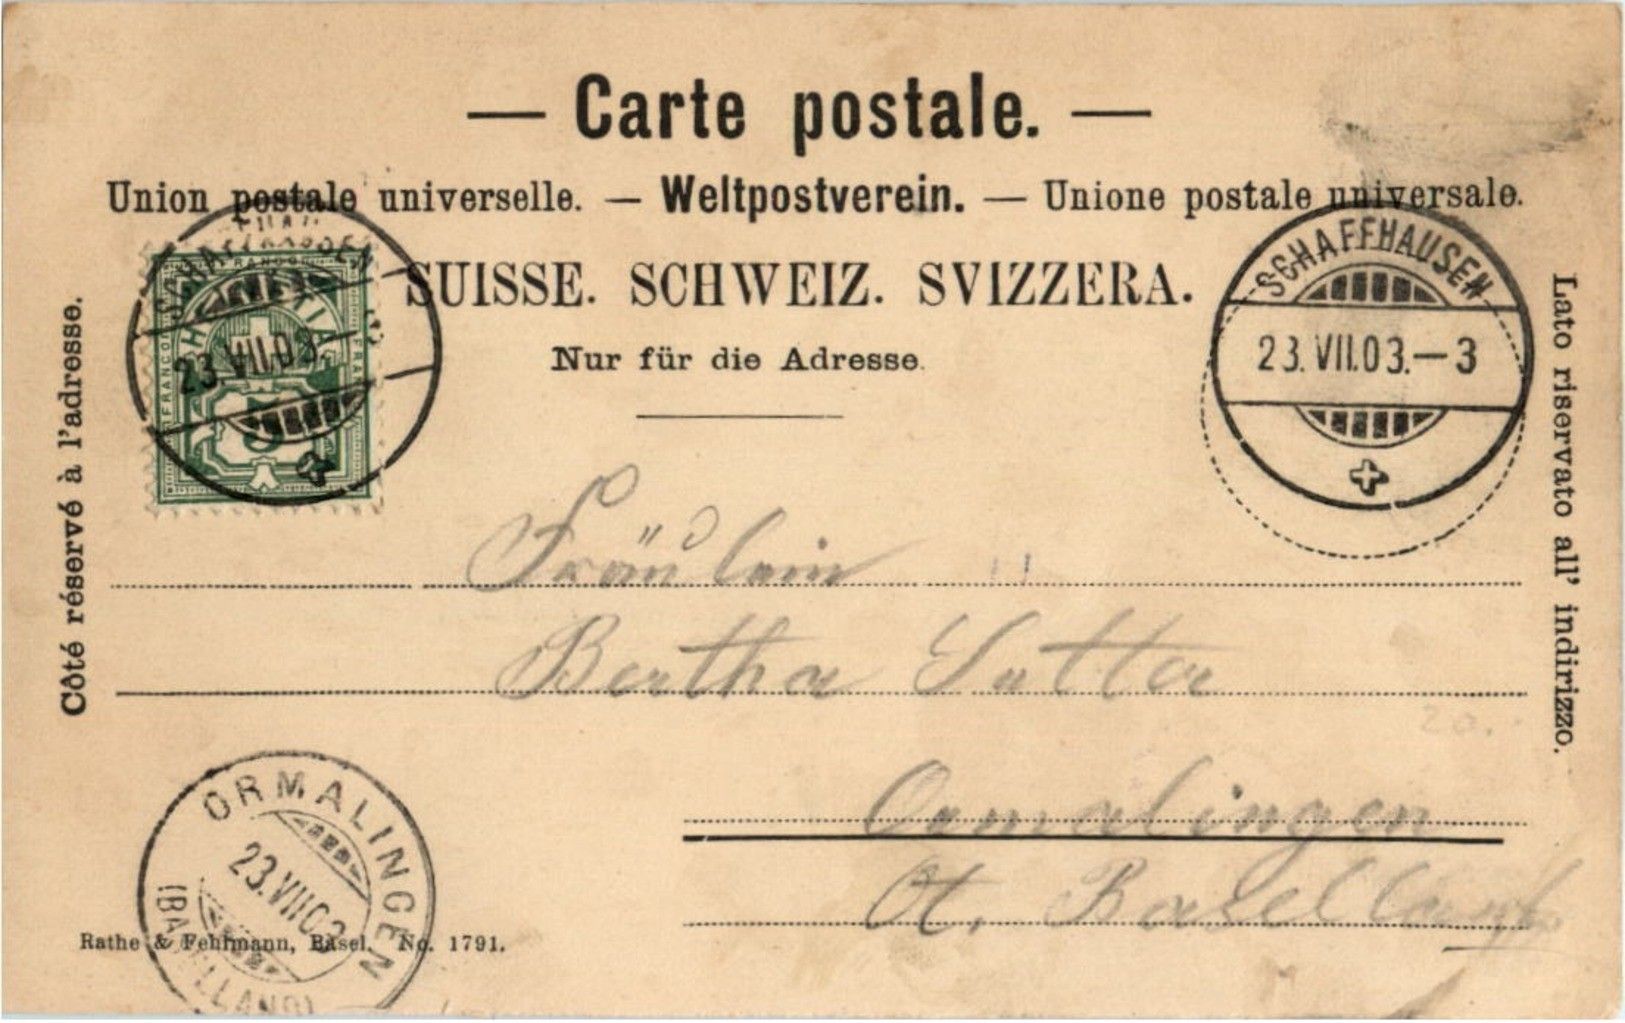 — Carte postale. —
Union postale universelle. — Weltpostverein. — Unione postale universale.
SUISSE. SCHWEIZ. SVIZZERA.
Nur für die Adresse.
Côté réservé à l'adresse.
Lato riservato all' indirizzo.
FRANCO
SCHAFFHAUSEN
23.VII.03.
SCHAFFHAUSEN
23.VII.03.—3
Fräulein
Bertha Sutter
Ormalingen
Ct. Baselland
20.
ORMALINGEN
23.VII.03
(BASELLAND)
Rathe & Fehlmann, Basel. No. 1791.